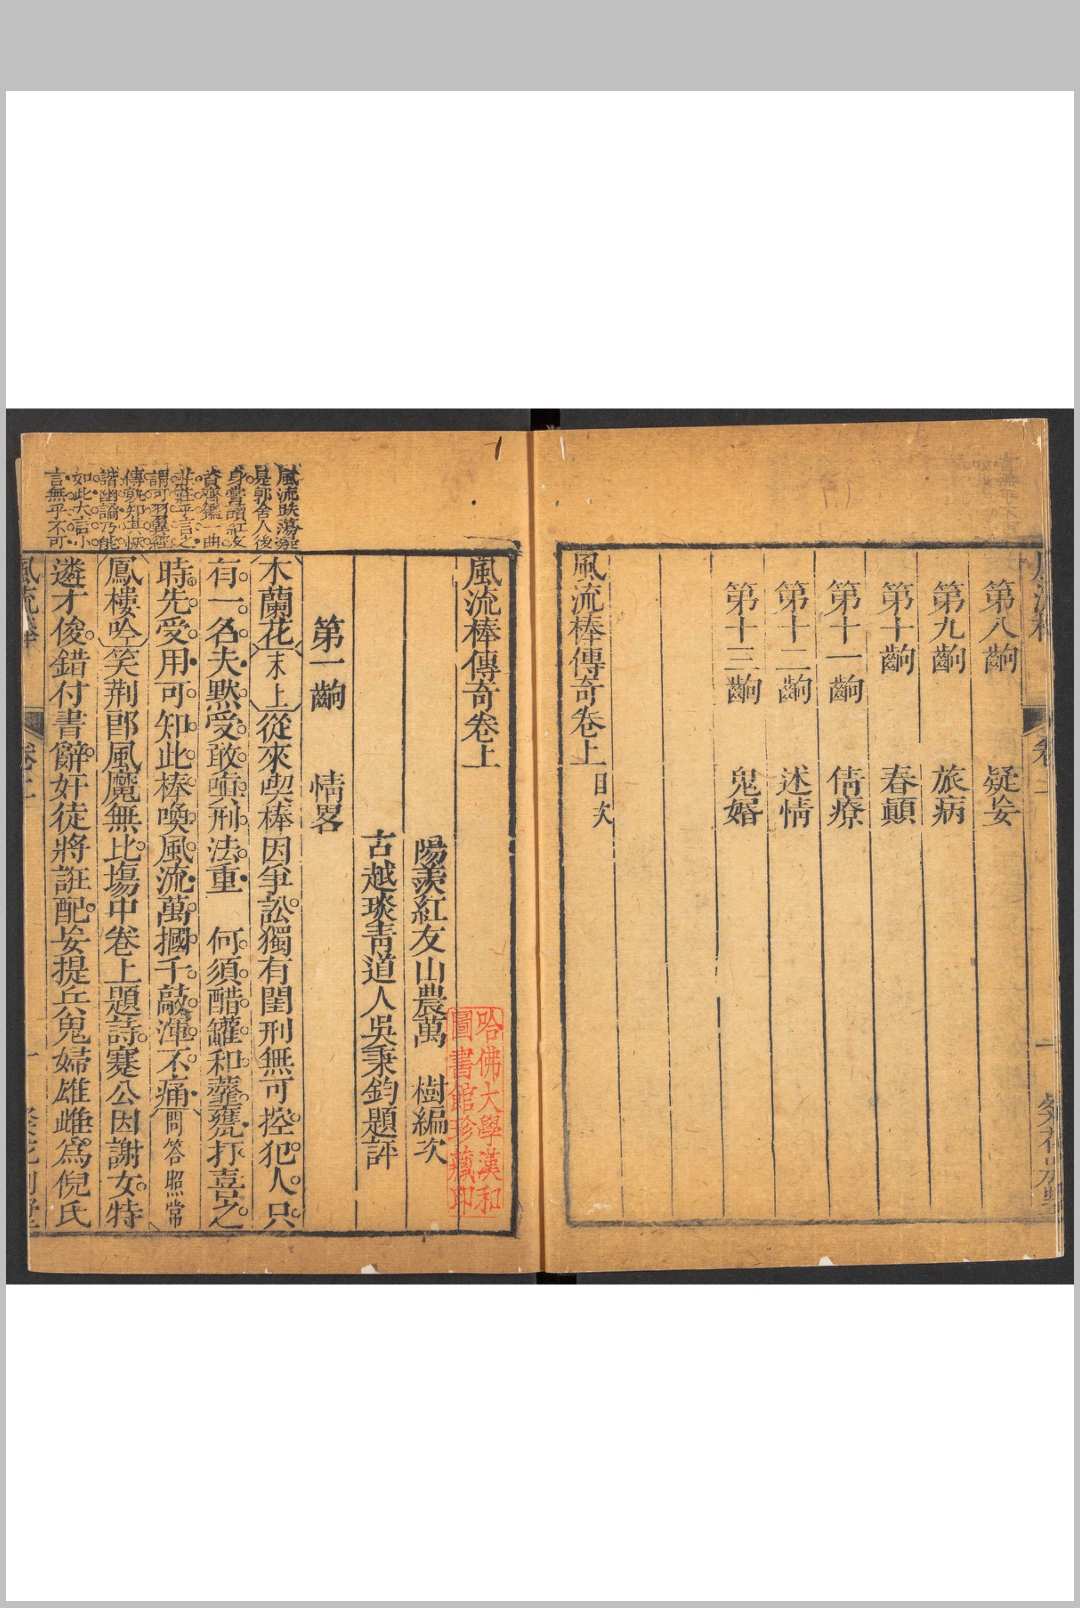 第八齣　疑妾
第九齣　旅病
第十齣　春顛
第十一齣　倩療
第十二齣　述情
第十三齣　鬼婚
風流棒傳奇卷上　目次
風流棒傳奇卷上
陽羨紅友山農萬　樹編次
古越琰青道人吳秉鈞題評
第一齣　情畧
木蘭花末上從來喫棒因爭訟獨有閨刑無可控犯人只
有一名夫黙受敢嗔刑法重　何須醋罐和虀甕打喜兒之
時先受用可知此棒喚風流萬摑千敲渾不痛問答照常
鳳樓吟笑荆郎風魔無比塲中卷上題詩蹇公因謝女特
遴才俊錯付書辭奸徒將誑配妾提兵鬼婦雄雌爲倪氏
風流跌蕩
是郭舍人後
身嘗讀紅友
資齊鑑一曲
謂可羽翼經
傳孰知其恢
諧幽論乃能
如此大言小
言無乎不可
哈佛大學漢和
圖書館珍藏印